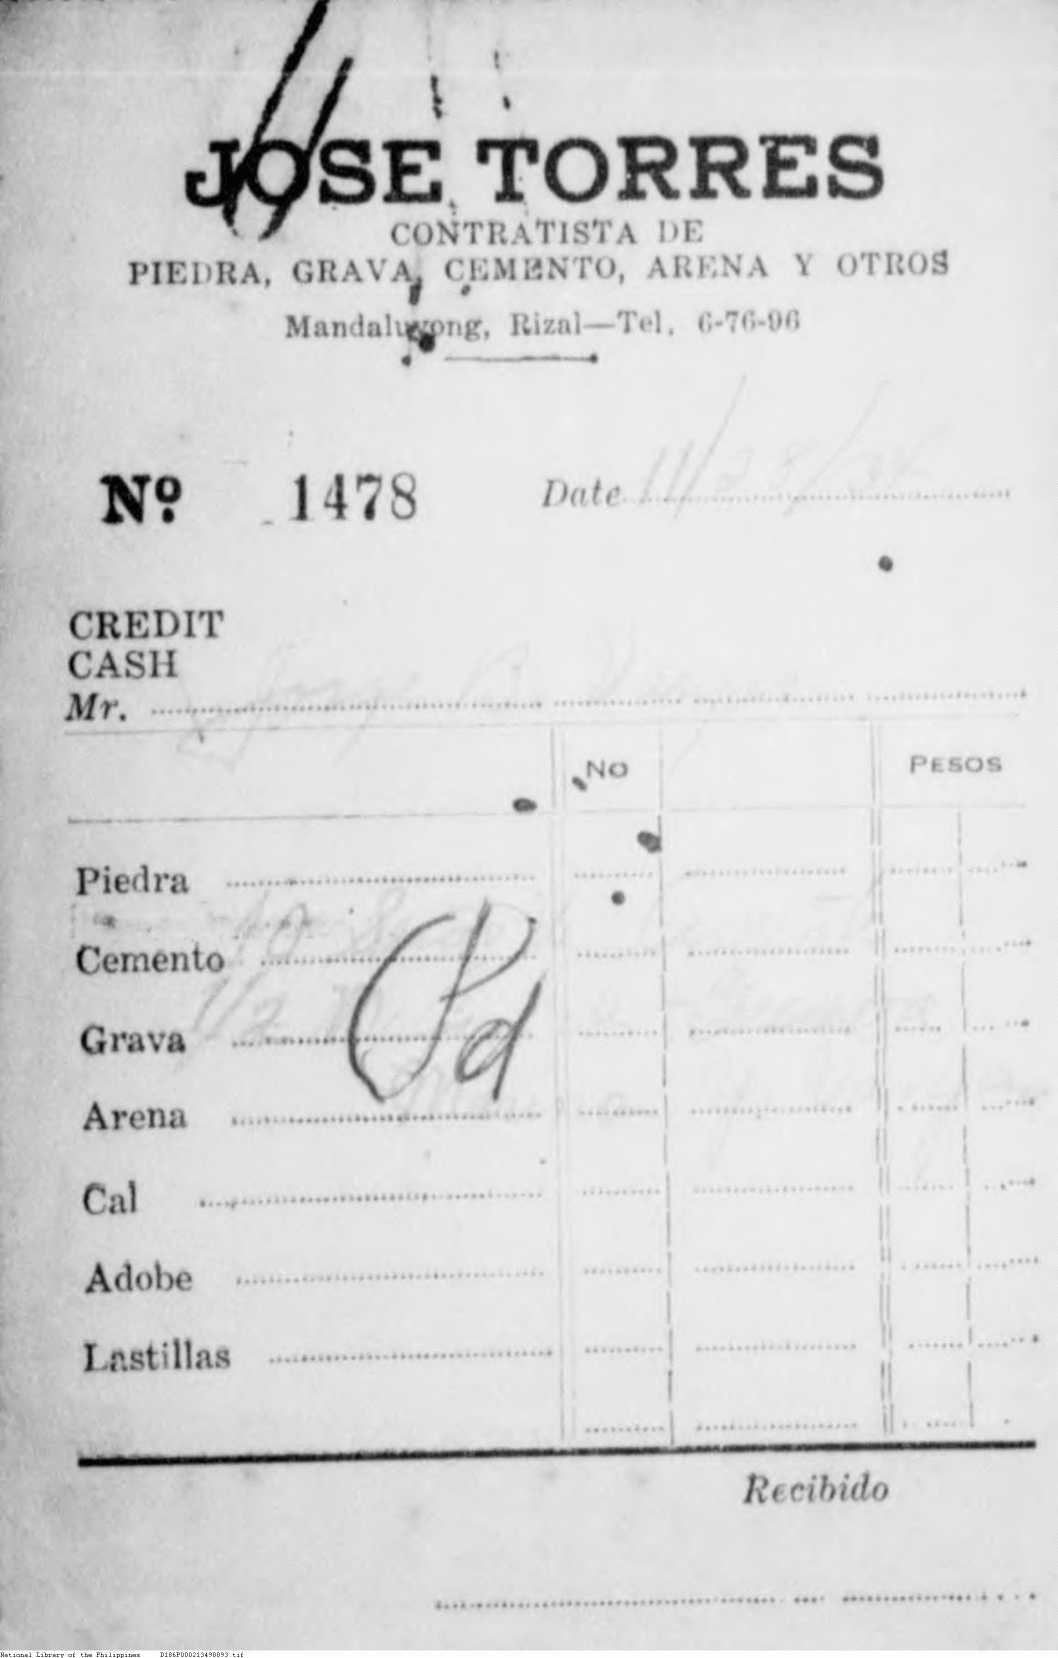 JOSE TORRES
CONTRATISTA DE
PIEDRA, GRAVA, CEMENTO, ARENA Y OTROS
Mandaluyong, Rizal—Tel. 6-76-96
Nº. 1478 Date 11/28/
CREDIT
CASH
Mr.
No PESOS
Piedra
Cemento 10
Grava 1/2
Arena
Cal
Adobe
Lastillas
Pd
Recibido
National Library of the Philippines D186P000213498093.tif